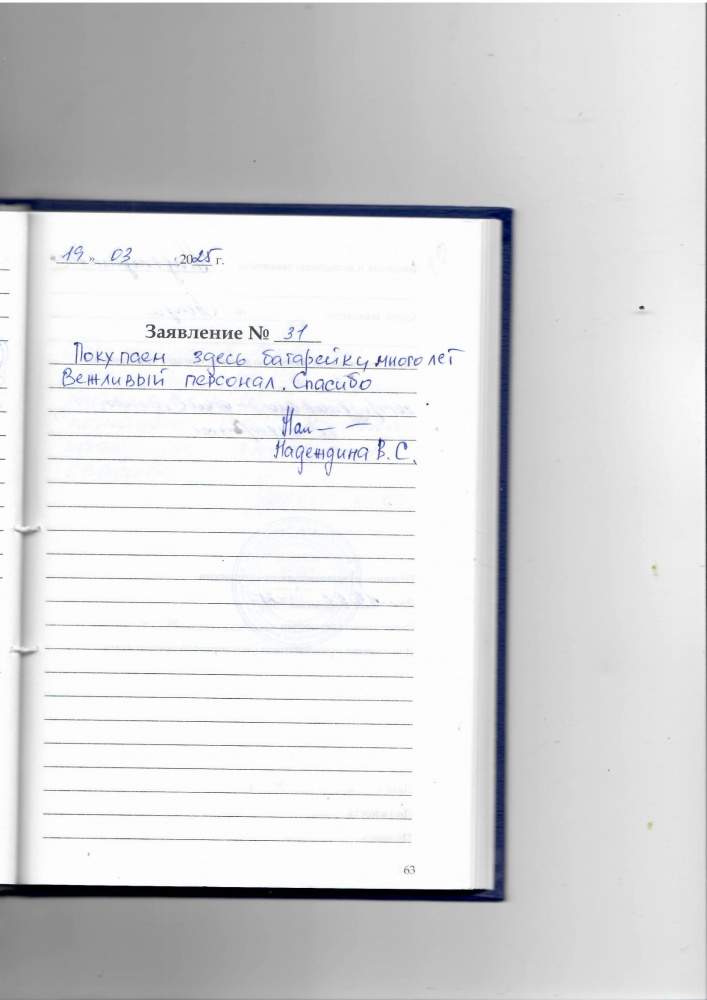 "19" 03 2025 г.
Заявление № 31
Покупаем здесь батарейку много лет
Вежливый персонал. Спасибо
Надеждина В. С.
63